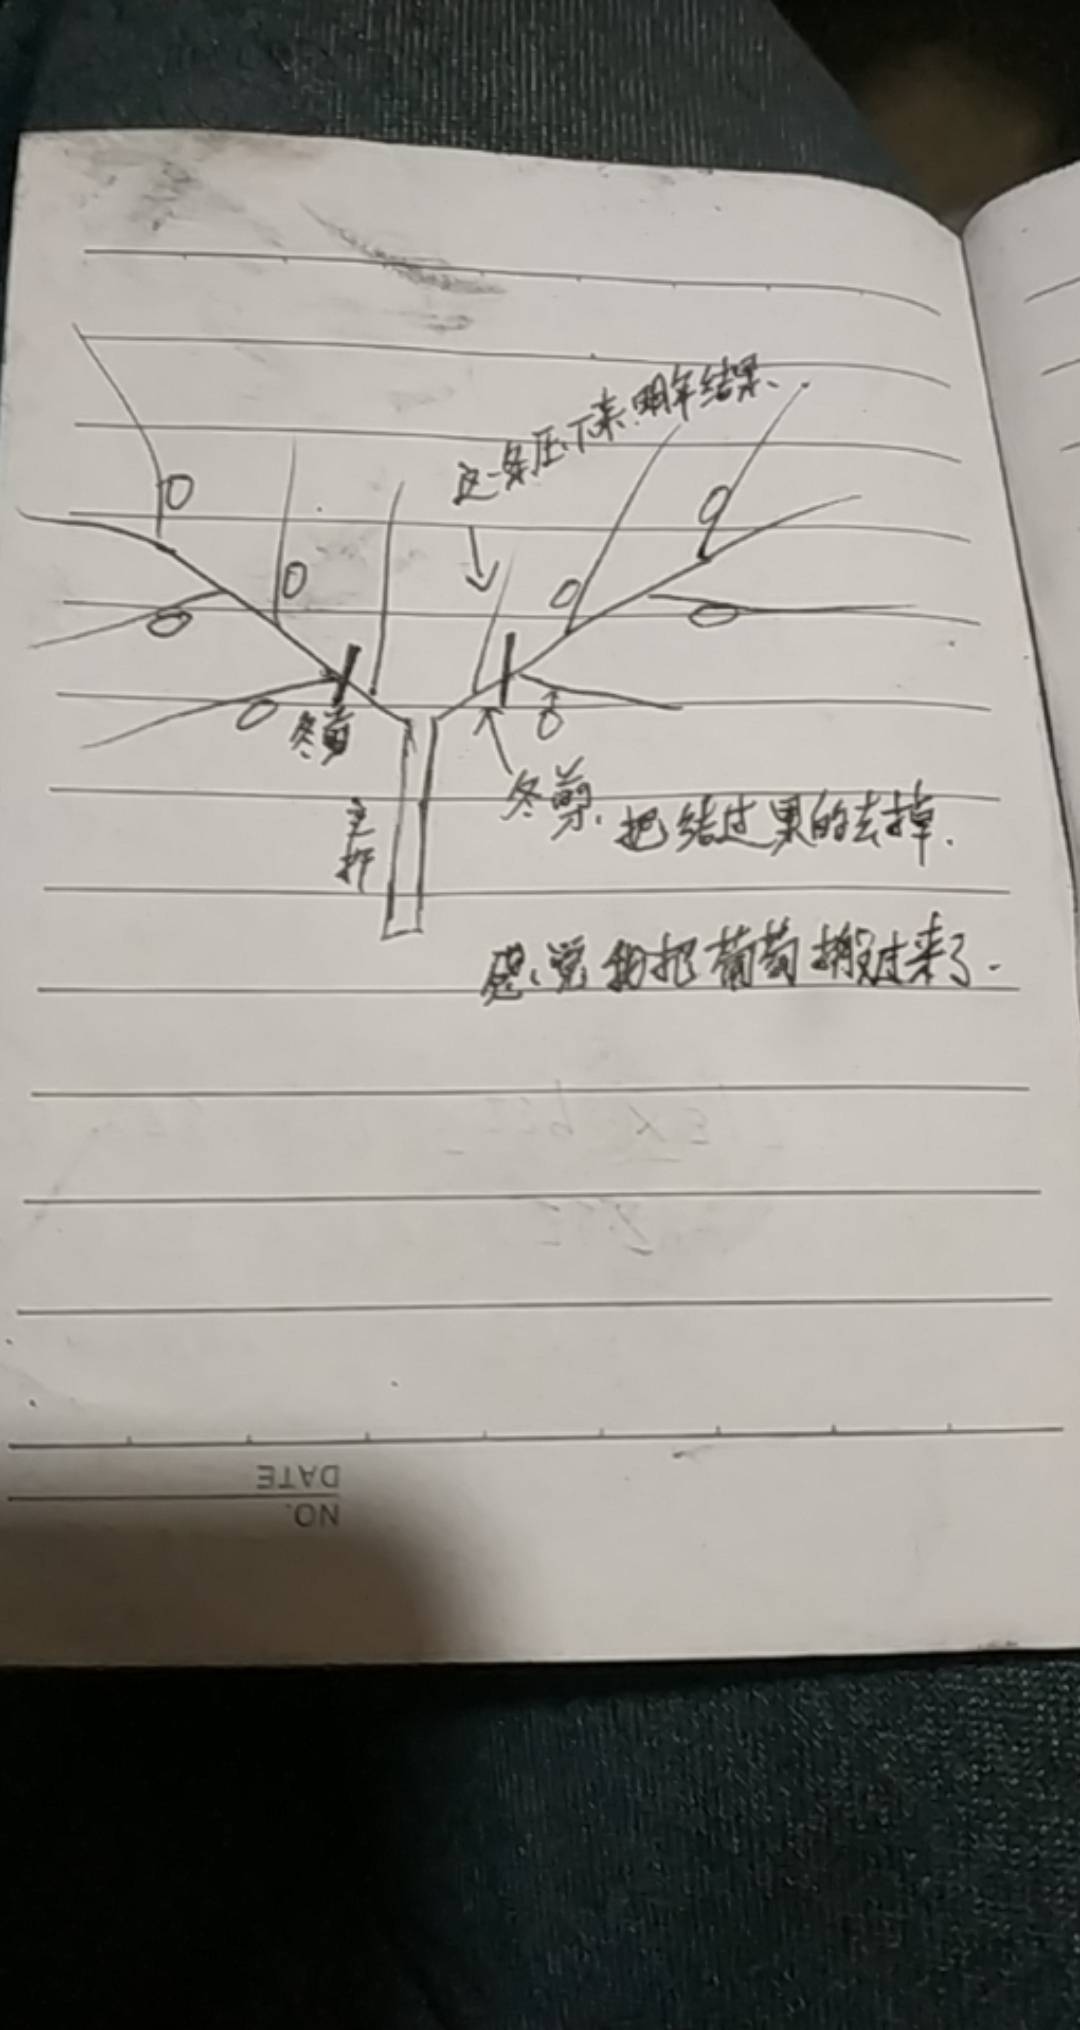 这一条压下来,明年结果、
冬剪
冬剪、把结过果的去掉.
主杆
感觉把葡萄搬过来了.
DATE
NO.